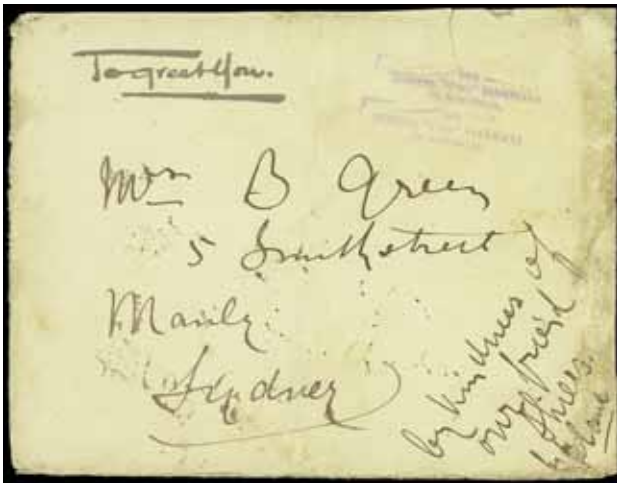 To greet You.
Mrs B Green
5 Smith street
Manly
Sydney
by kindness of
our friend